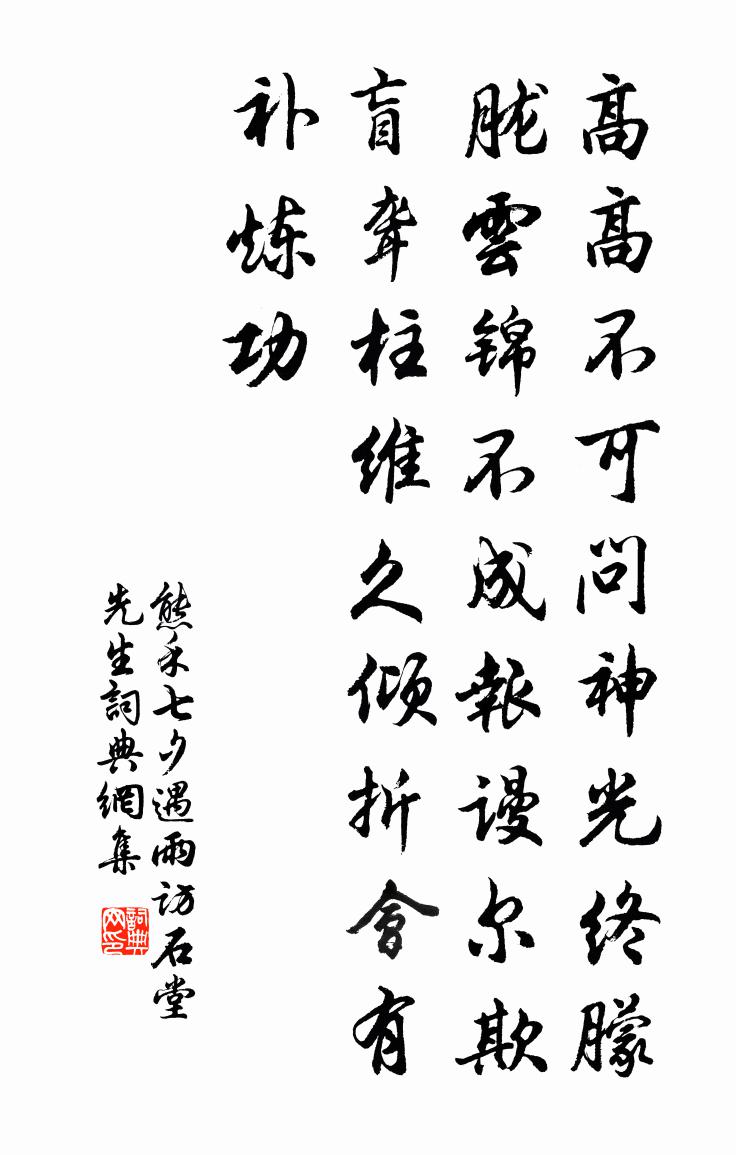 高高不可問神光终朦
胧雲锦不成報谩尔欺
盲聋柱维久倾折會有
补炼功
熊禾七夕遇雨访石堂
先生詞典網集
詞典
网印